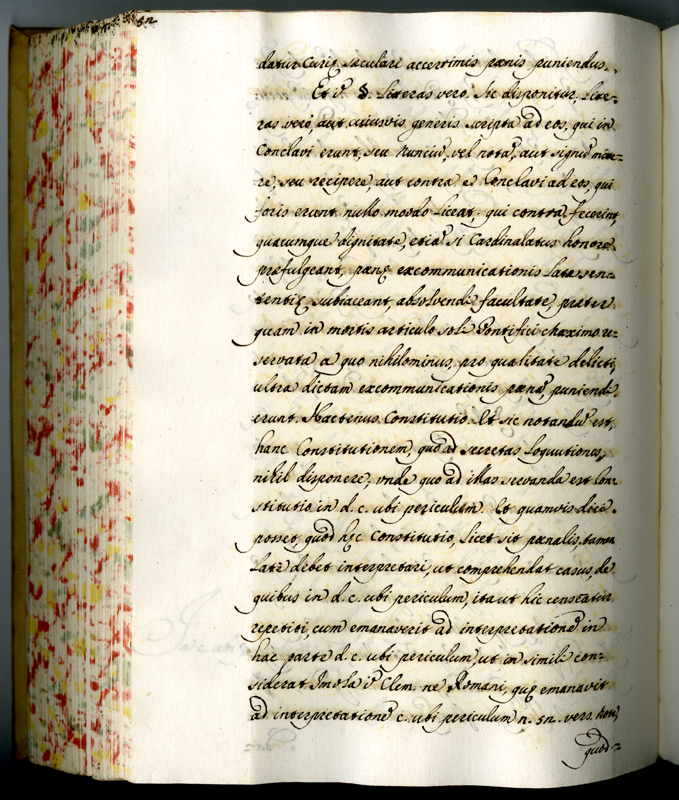 52
datur Curię sæculari acerrimis pœnis puniendus.
Et iñ. §. Literas vero. Sic disponitur, Lite-
ras verò, aut cuiusvis generis scripta ad eos, qui in
Conclavi erunt, seu nunciũ, vel notã, aut signũ mitte-
re, seu recipere, aut contra è Conclavi ad eos, qui
foris erunt nullo modo liceat, qui contra fecerint,
quacumque dignitate, etiã si Cardinalatus honore
præfulgeant, pœnę excommunicationis latæ sen-
tentię subiaceant, absolvendi facultate, præter
quam in mortis articulo soli Pontifici Maximo re-
servata à quo nihilominus, pro qualitate delicti,
ultra dictam excommunicationis pœnã, puniendi
erunt. Hactenus Constitutio. Et sic notandũ est,
hanc Constitutionem, quo ad secretas loquutiones,
nihil disponere, unde quo ad illas servanda est Con-
stitutio in d. c. ubi periculum. Et quamvis dici
posset, quod hęc Constitutio, licet sit pœnalis, tamen
latè debet interpretari, ut comprehendat casus, de
quibus in d. c. ubi periculum, ita ut hic censeatur
repetiti, cum emanaverit ad interpretationẽ in
hac parte d. c. ubi periculum, ut in simili con-
siderat Imola iñ Clem. ne Romani, quę emanavit
ad interpretationẽ c. ubi periculum n. 52. vers.
quod